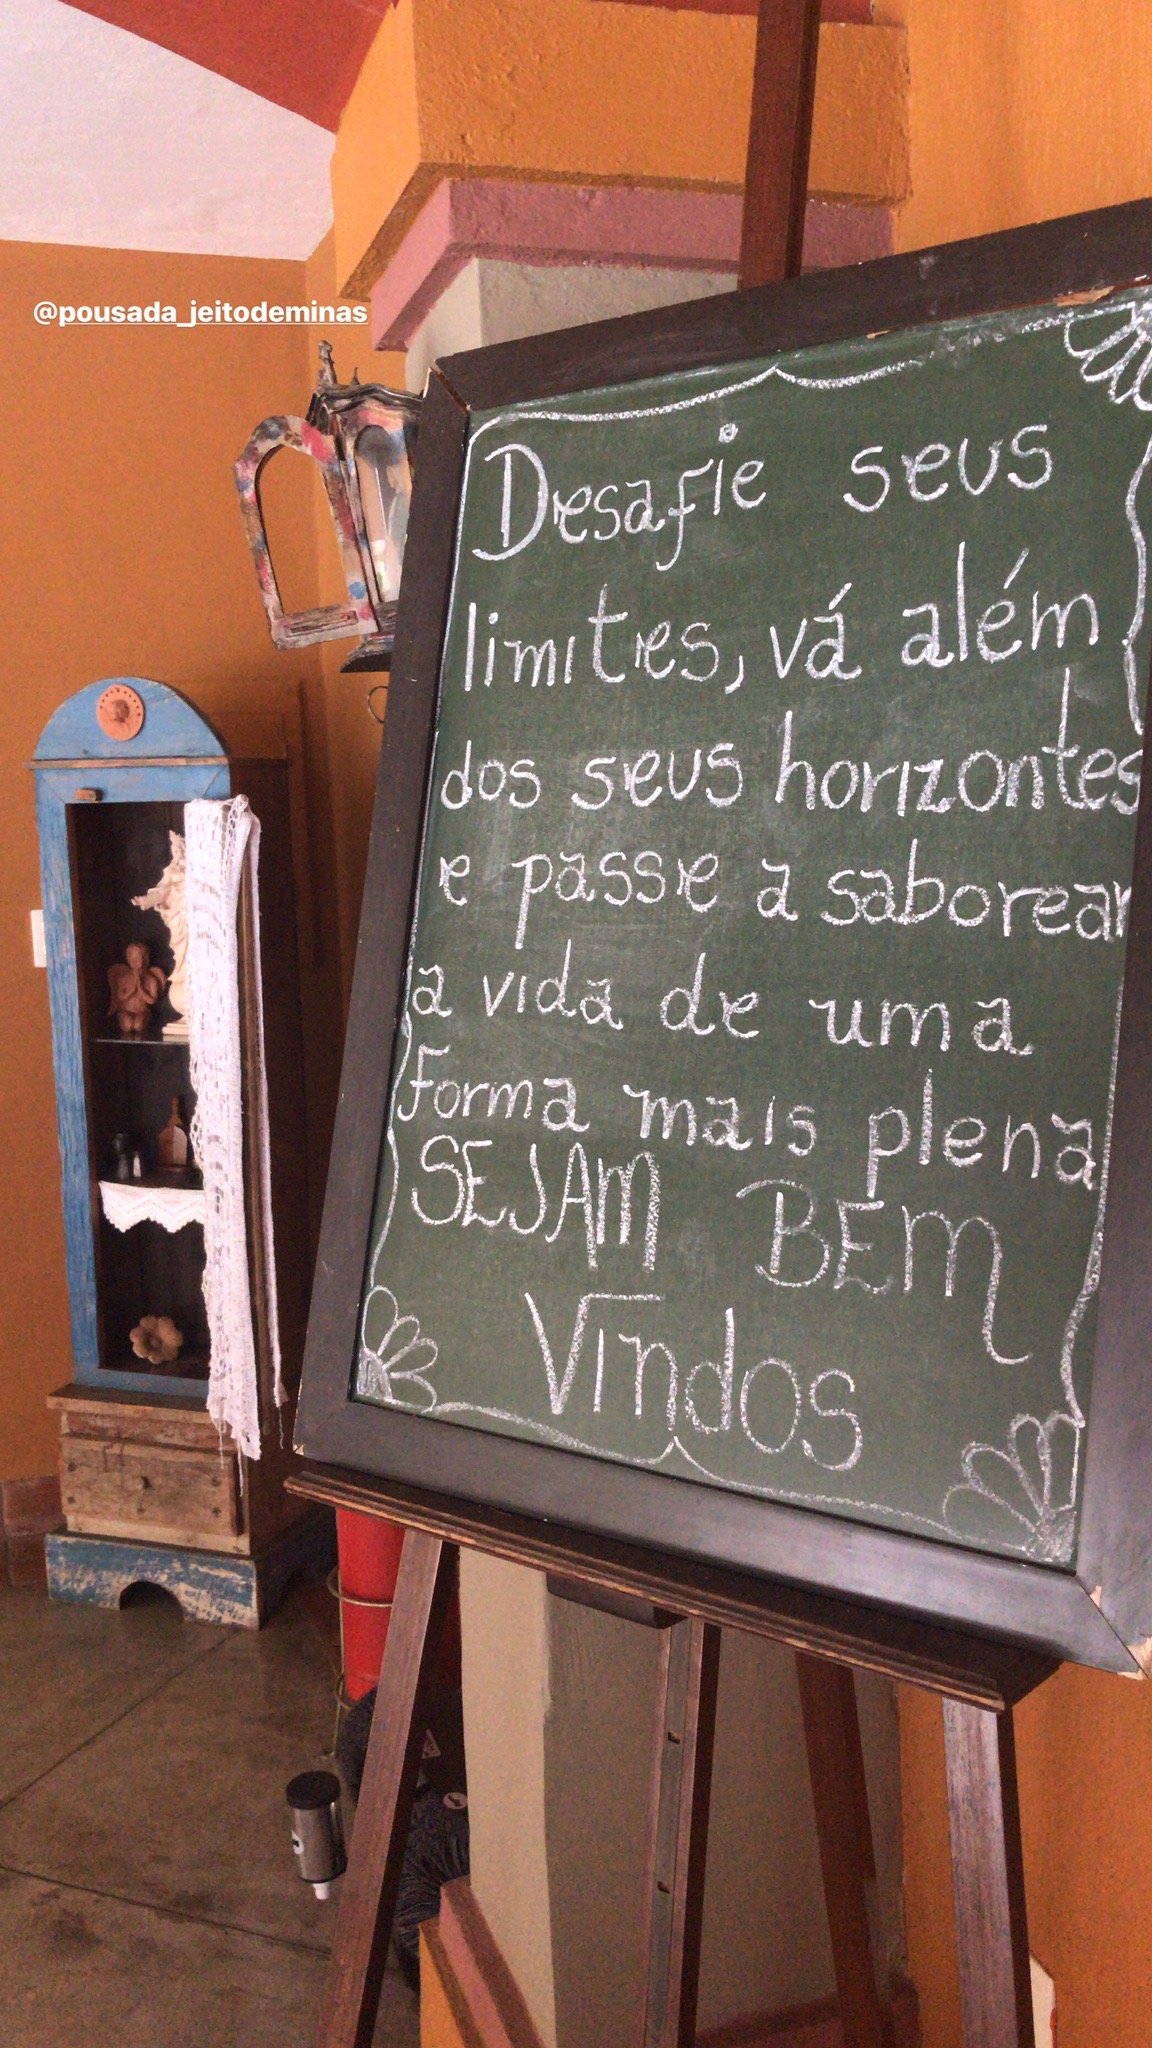 @pousada_jeitodeminas
Desafie seus
limites, vá além
dos seus horizontes
e passe a saborear
a vida de uma
forma mais plena
SEJAM BEM
VindOS